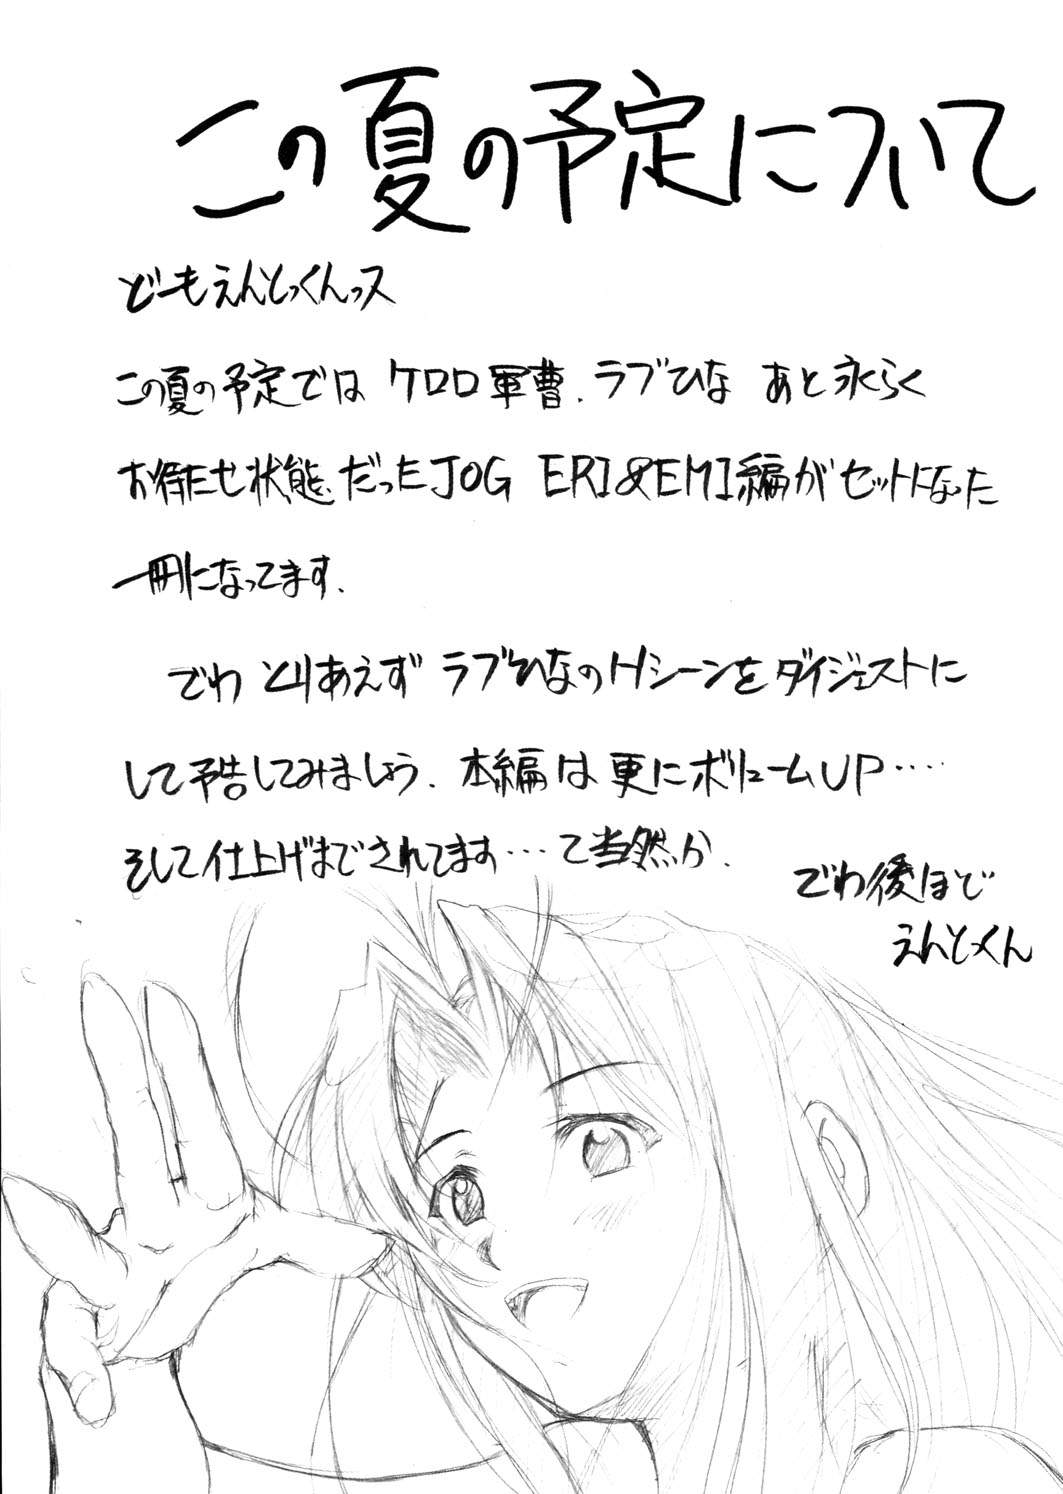 この夏の予定について
どーもえんとっくんっス
この夏の予定では ケロロ軍曹.ラブひな あと永らく
お待たせ状態だったJOG ERI&EMI編がセットになった
一冊になってます.
でわ とりあえず ラブひなのHシーンをダイジェストに
して予告してみましょう. 本編は更にボリュームUP‥‥
そして仕上げまでされてます…て当然か.
でわ後ほど
えんとっくん